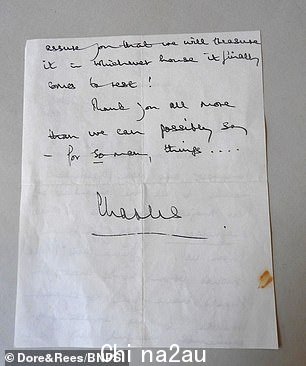 assure you that we will treasure
it in whichever house it finally
comes to rest!
Thank you all more
than we can possibly say
- for so many things ....
Charles
© Dore&Rees/BNPS
Chi na2au